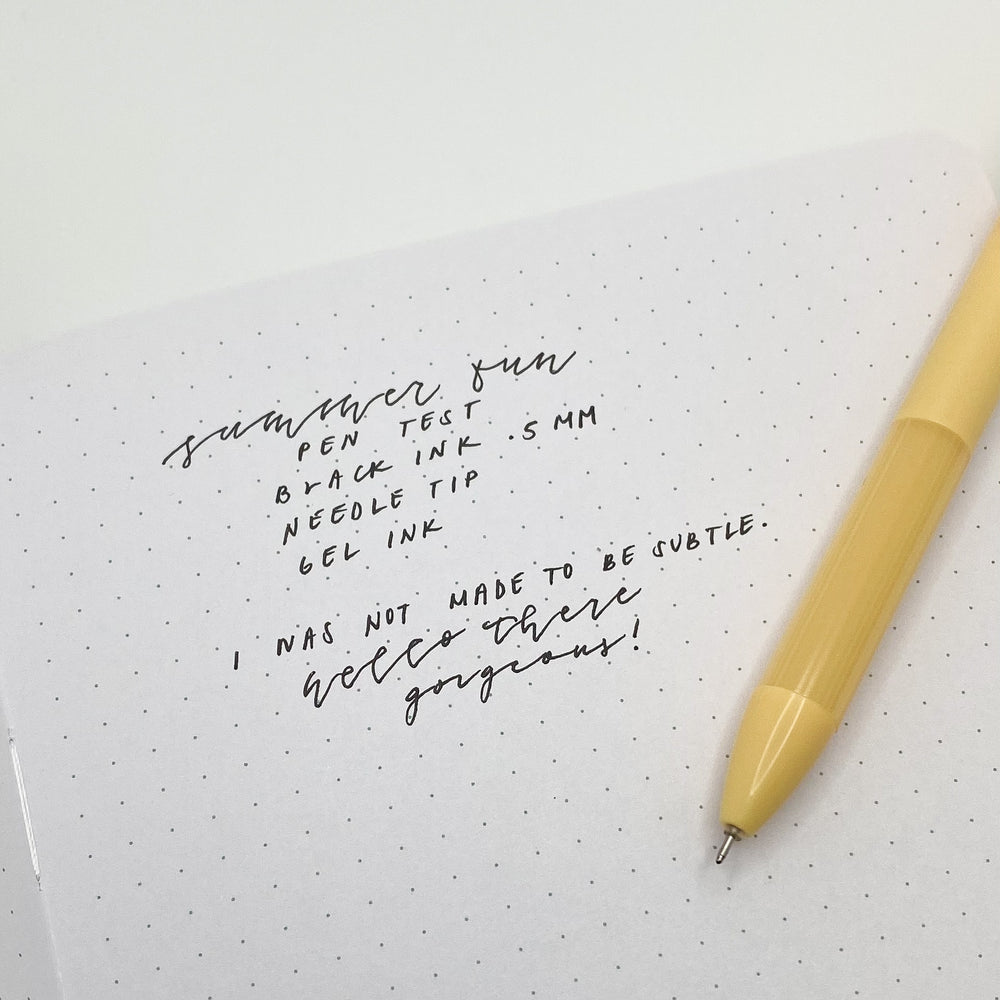 summer fun
PEN TEST
BLACK INK .5 MM
NEEDLE TIP
GEL INK
I WAS NOT MADE TO BE SUBTLE.
hello there
gorgeous!